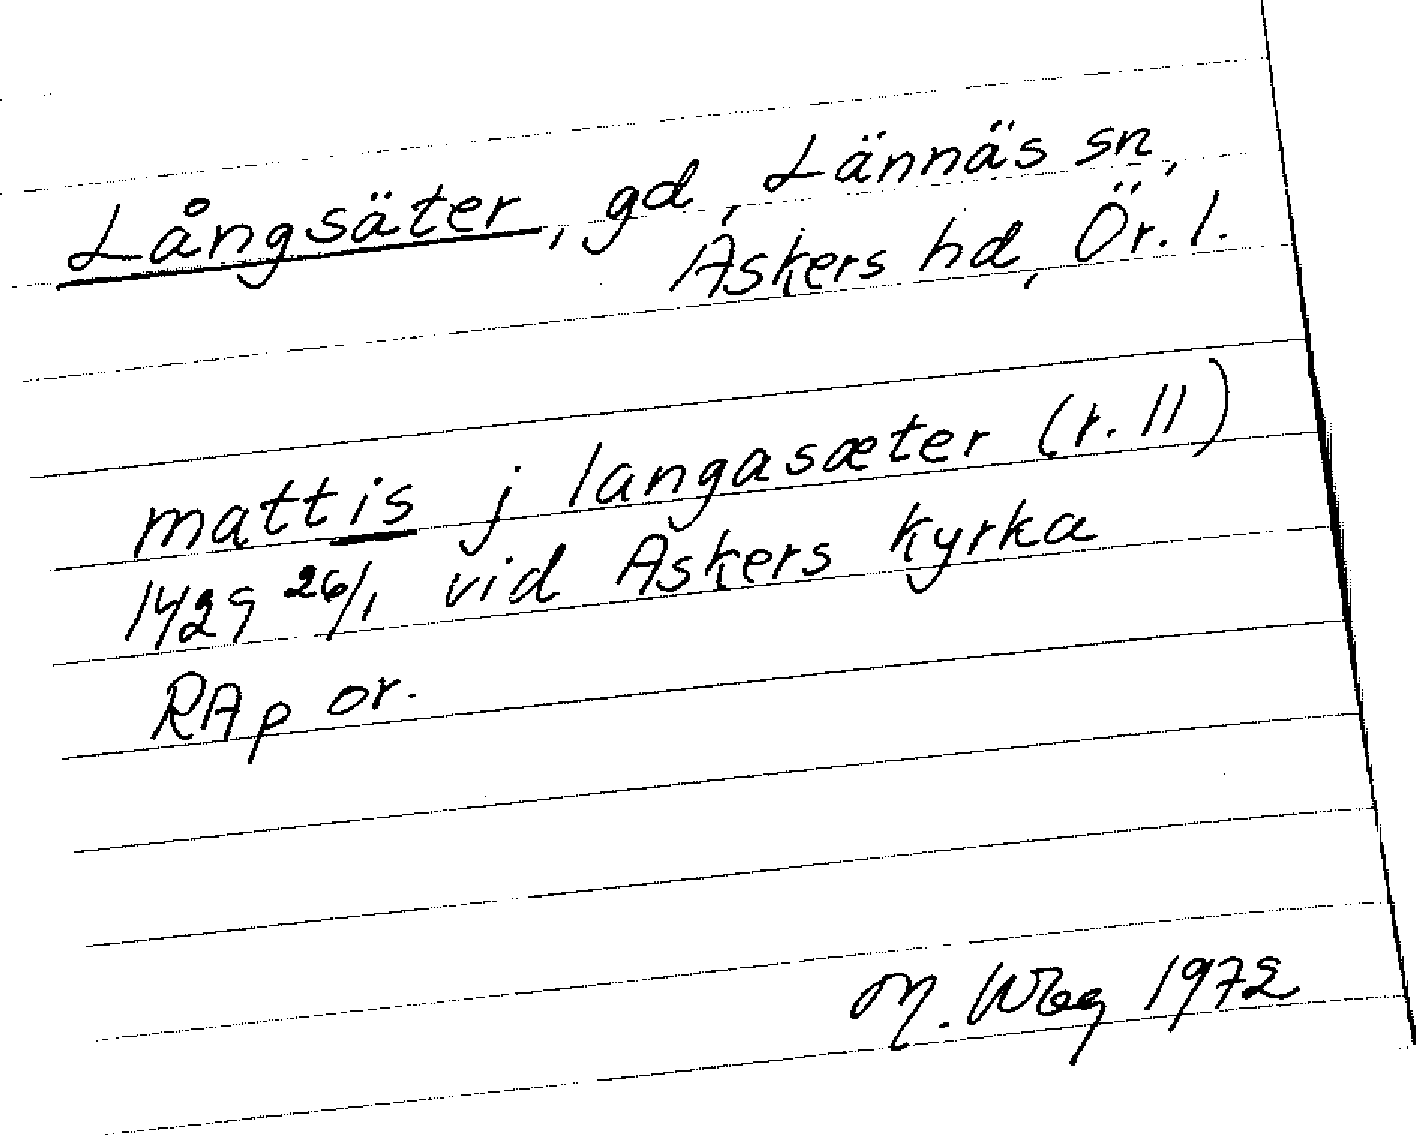 Långsäter, gd, Lännäs sn,
Askers hd, Ör. l.
mattis j langasæter (r. 11)
1429 26/1 vid Askers kyrka
RAp or.
M. 1972